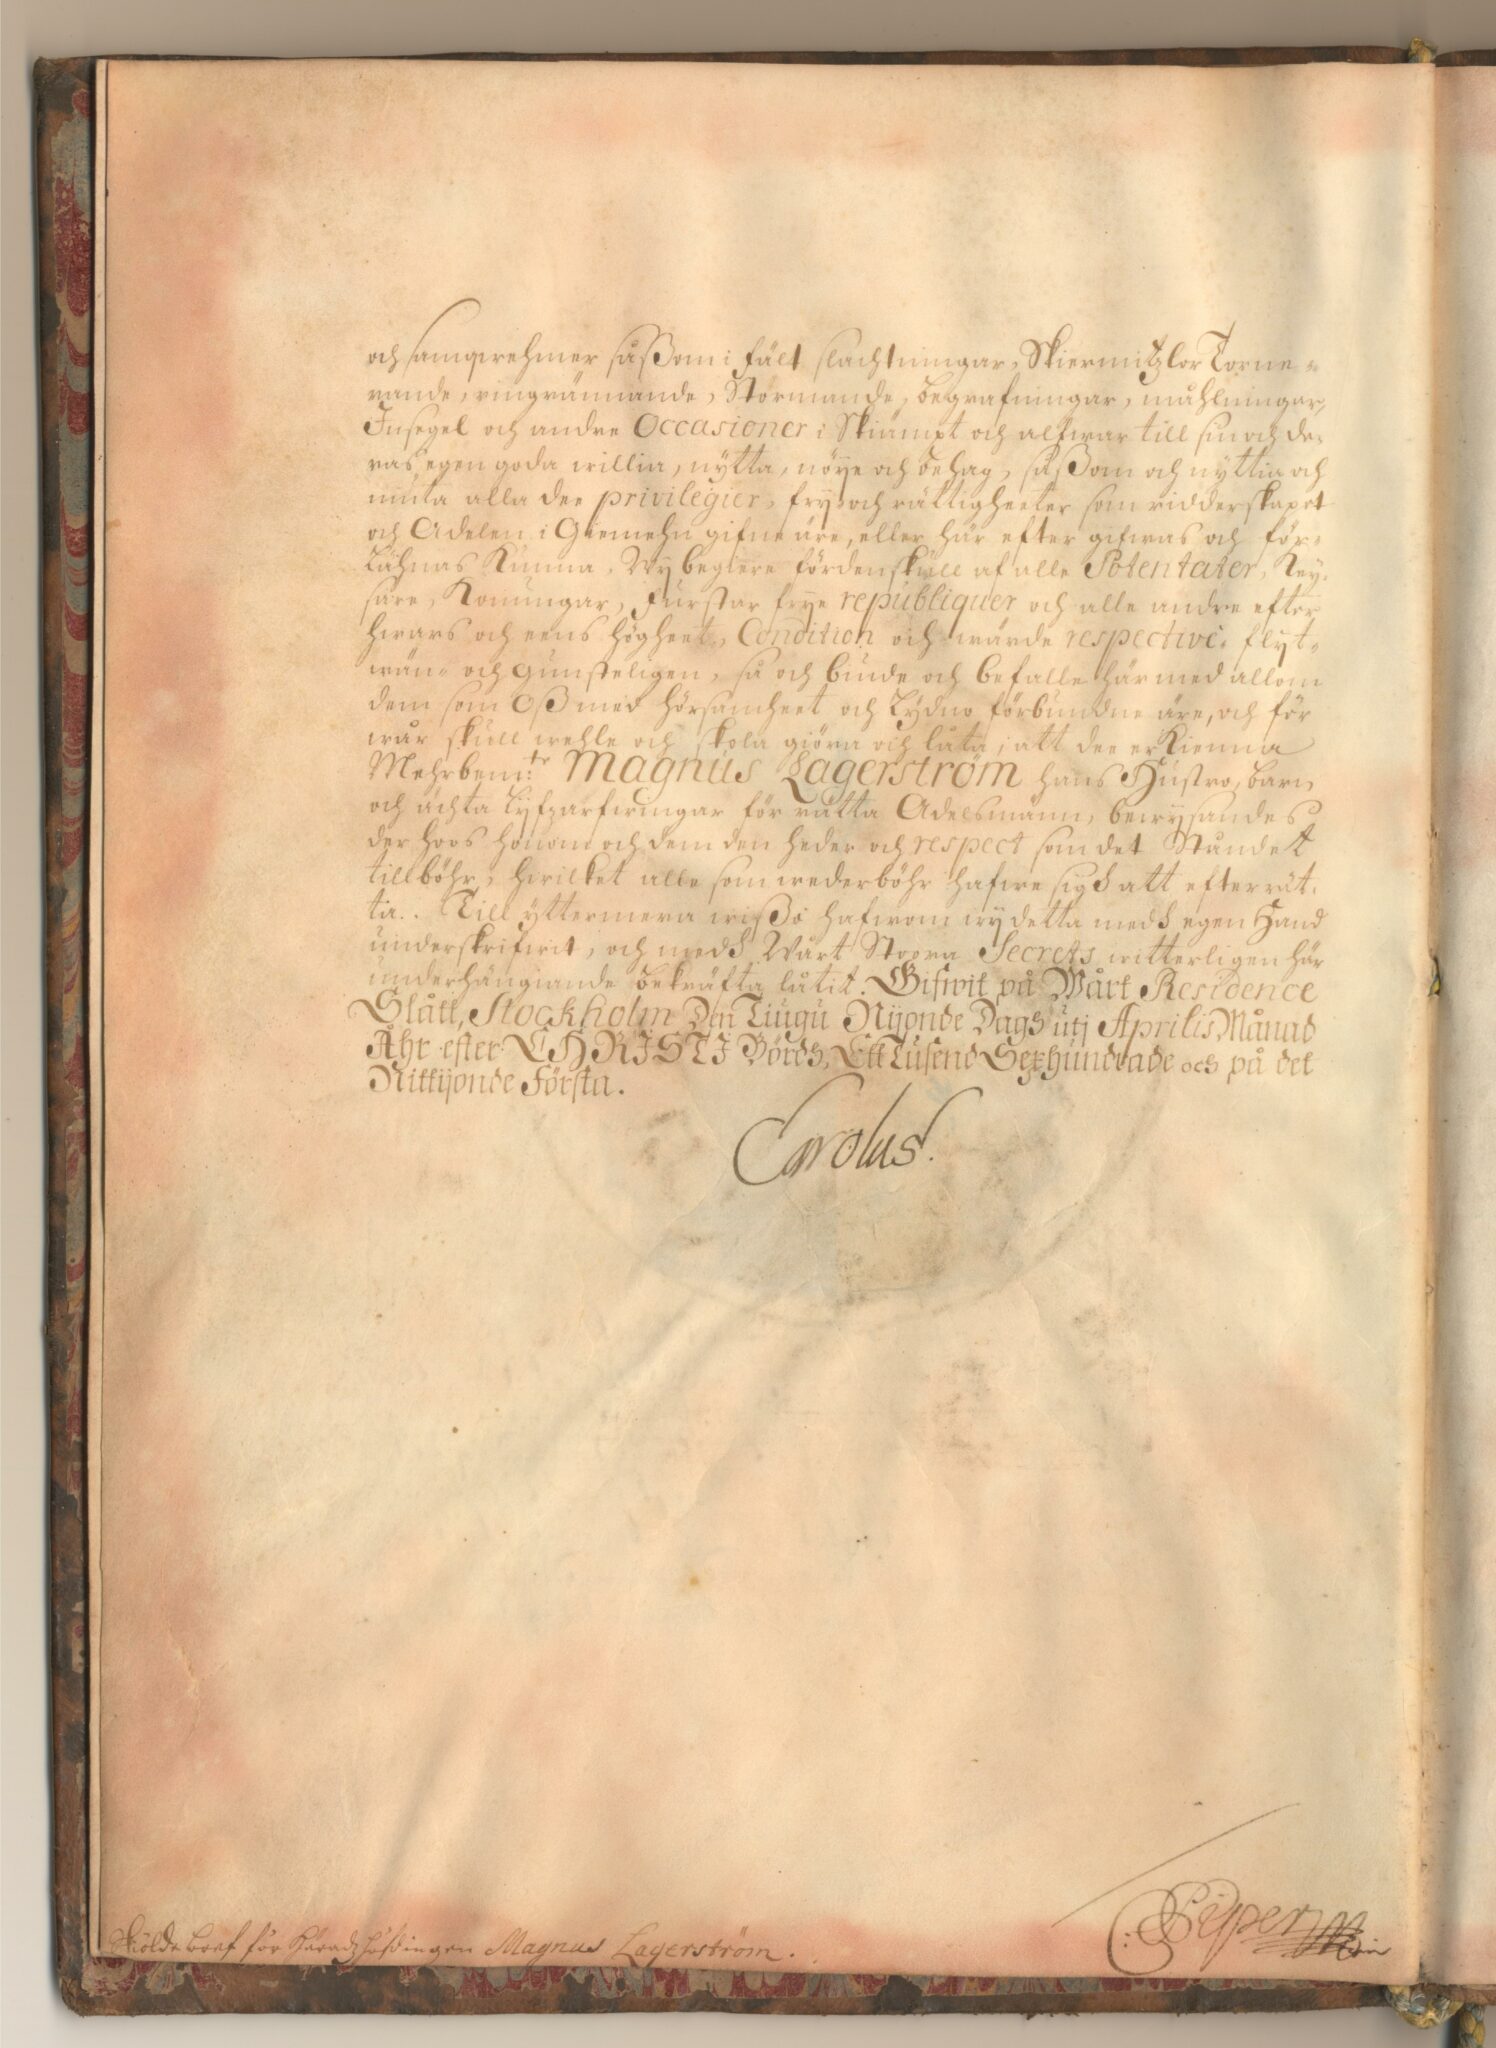 och sampqrehmer såßom i fält slachtningar, Skiermitzlor Torne-
rande, ringrännande, Stormande, begrafningar, måhlningar,
Insegel och andre Occasioner i Skiämpt och alfwar till sin och de-
ras egen goda willia, nytta, nöye och behag, såßom och nyttia och
niuta alla dee privilegier, fry- och rättigheeter som ridderskapet
och Adelen i Giemehn gifne äre, eller här efter gifwas och för-
Lähnas Kunna. Wy begiere fördenskull af alle Potentater, Key-
sare, Konungar, Furstar frye republiquer och alle andre efter
hwars och eens högheet, Condition och wärde respective, flyt-
wän- och gunsteligen, så och biude och befalle här med allom
dem som Oß med hörsamheet och Lydno förbundne äre, och för
wår skull wehle och skola giöra och låta, att dee erkienna
Mehrbem:te Magnus Lagerström hans Hustro, barn
och ächta Lyfzarfwingar för rätta Adelsmänn, bewysandes
der hoos honom och dem den heder och respect som det Ståndet
tillböhr, hwilket alle som wederböhr hafwe sigh att efterrät-
ta. Till yttermera wißo hafwom wy detta medh egen Hand
underskrifwit, och medh Wårt Stoora Secrets witterligen här
underhängiande bekräfta låtit. Gifwit på Wårt Residence
Slått, Stockholm Den Tiugu Nijonde Dagh utj Aprilis Månad
Åhr efter CHRISTI Bördh, Ett Tusend Sexhundrade och på det
Nittijonde Första.
Carolus.
Skiölde bref för Häradzhöfdingen Magnus Lagerström.
C Piper